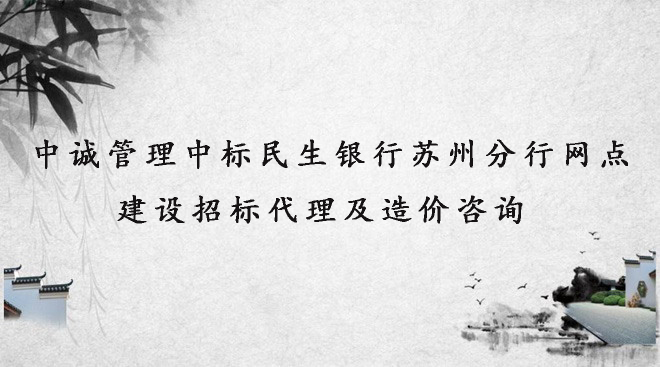 中诚管理中标民生银行苏州分行网点
建设招标代理及造价咨询